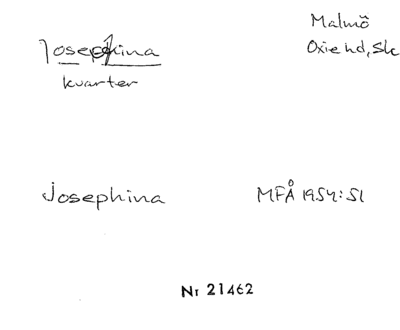 Josephina
Malmö
Oxie hd, Sk
kvarter
Josephina
MFÅ 1954:51
Nr 21462